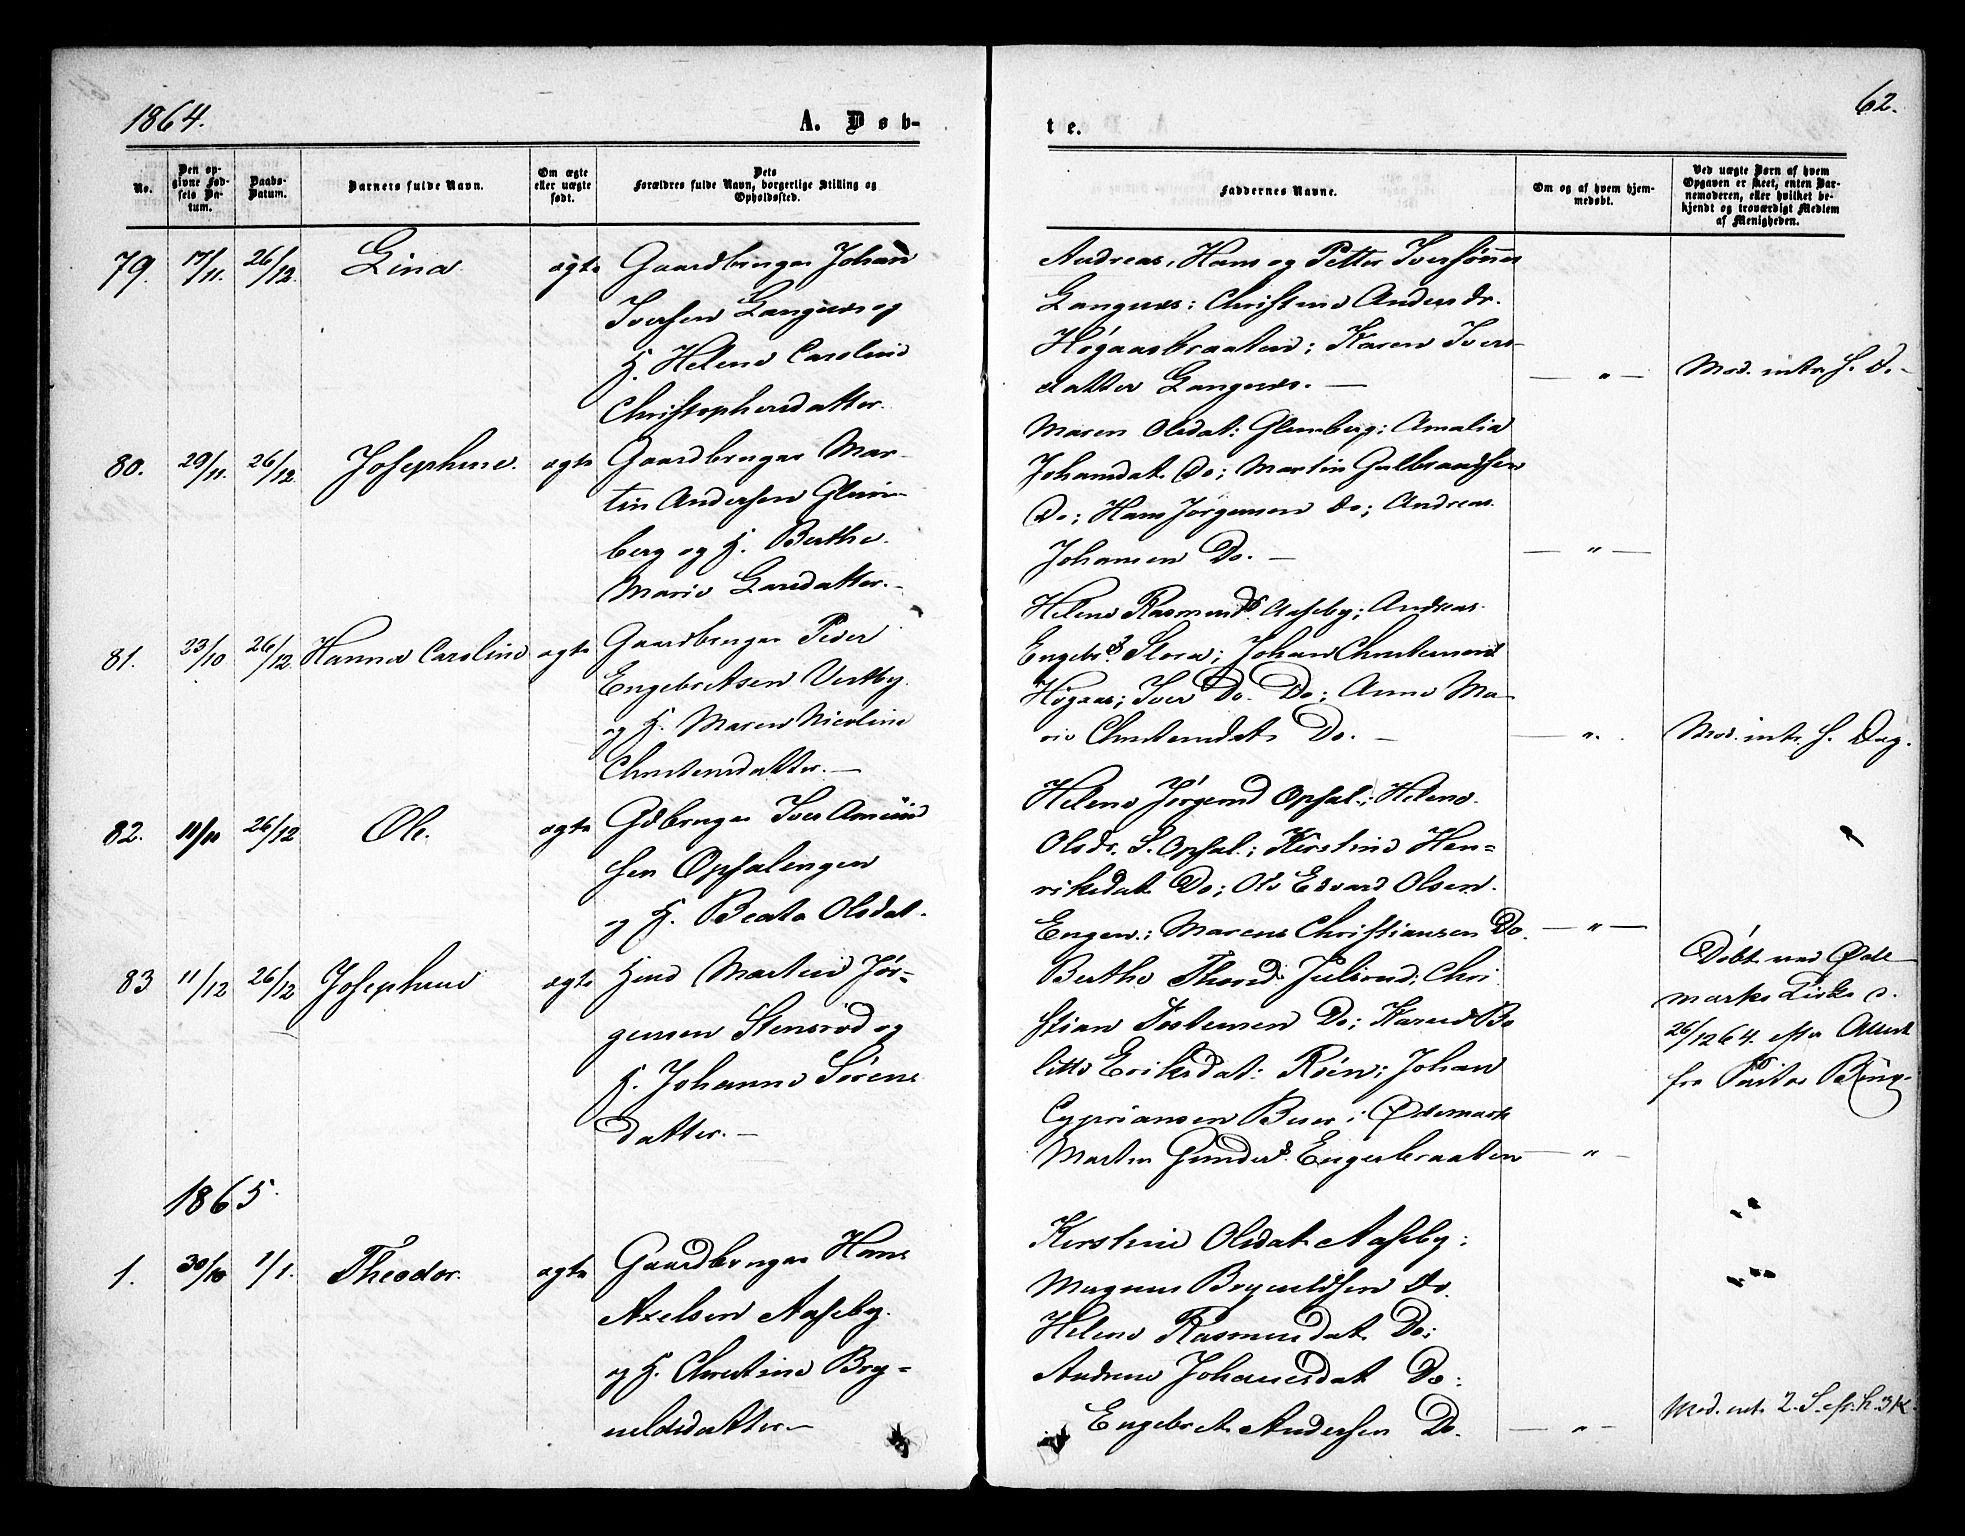 1864.
A. Døb-
te.
62.
No.
Den op-
givne Fød-
sels Da-
tum.
Daabs-
Datum.
Barnets fulde Navn.
Om ægte
eller uægte
født.
Dets
Forældres fulde Navn, borgerlige Stilling og
Opholdssted.
Faddernes Navne.
Om og af hvem hjem-
medøbt.
Ved uægte Børn af hvem
Opgaven er skeet, enten Bar-
nemoderen, eller hvilket be-
kjendt og troværdigt Medlem
af Menigheden.
79. 17/11. 26/12. Lina ægte Gaardbruger Johan
Iversen Langnæs og
H. Helene Caroline
Christophersdatter.
Andreas, Hans og Petter Iversønner
Langnæs; Christine Andersdr.
Høgaasbraaten; Karen Ivers-
datter Langnæs. —
— " —
Mod. intr. s. D. -
80. 29/11. 26/12. Josephine. ægte Gaardbruger Mar-
tin Andersen Glem-
berg og H. Berthe
Marie Larsdatter. -
Maren Olsdat: Glemberg; Amalia
Johansdat. Do; Martin Gulbrandsen
Do; Hans Jørgensen Do; Andreas
Johansen Do. —
— " —
81. 23/10 26/12. Hanna Caroline ægte Gaardbruger Peder
Engebretsen Vestby.
og H. Maren Nicoline
Christensdatter. —
Helene Rasmusd. Aaseby; Andreas
Engebr. Slora; Johan Christensen
Høgaas; Iver Do. Do; Anne Ma-
rie Christensdat. Do. —
— " .
Mod. intr. s. Dag.
82. 11/11 26/12 Ole. ægte Gdbruger Iver Amund
sen Opsalengen
og H. Beate Olsdat.
Helene Jørgensd Opsal.; Helene
Olsdr. S. Opsal.; Kirstine Hen-
riksdat. Do; Ole Edvard Olsen
Engen.; Marens Christiansen Do.
— " —
83 11/12 26/12 Josephine ægte Hmd Martin Jør-
gensen Stensrød og
H. Johanne Sørens
datter. —
Berthe Thorsd. Julsrud; Chri
stian Tostensen Do; Karen Bo
lette Eriksdat: Røen; Johan
Cypriansen Buer; Ødemark
Martin Gunders. Engerbraaten
— " —
Døbt ved Øde
marks Kirke d.
26/12 64. efter Attest
fra Pastor Ring.
1865.
"
1. 30/10 1/1. Theodor. ægte Gaardbruger Hans
Axelsen Aaseby.
og H. Christine Bry-
nildsdatter —
Kirstine Olsdat. Aaseby;
Magnus Brynildsen Do.
Helene Rasmusdat. Do;
Andrine Johannesdat. Do.
Engebret Andersen Do.
— " —
Mod. int. 2. S. e. h. 3 K.